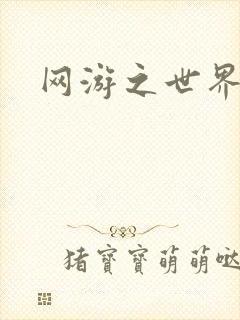 网游之世界
猪寶寶萌萌哒